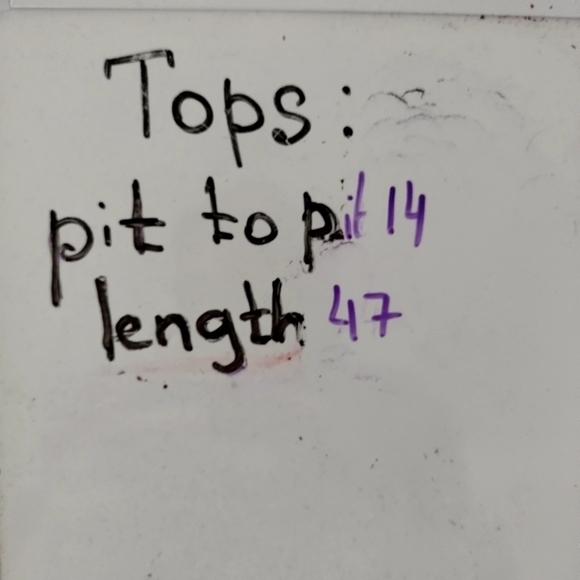 Tops:
pit to pit 14
length 47